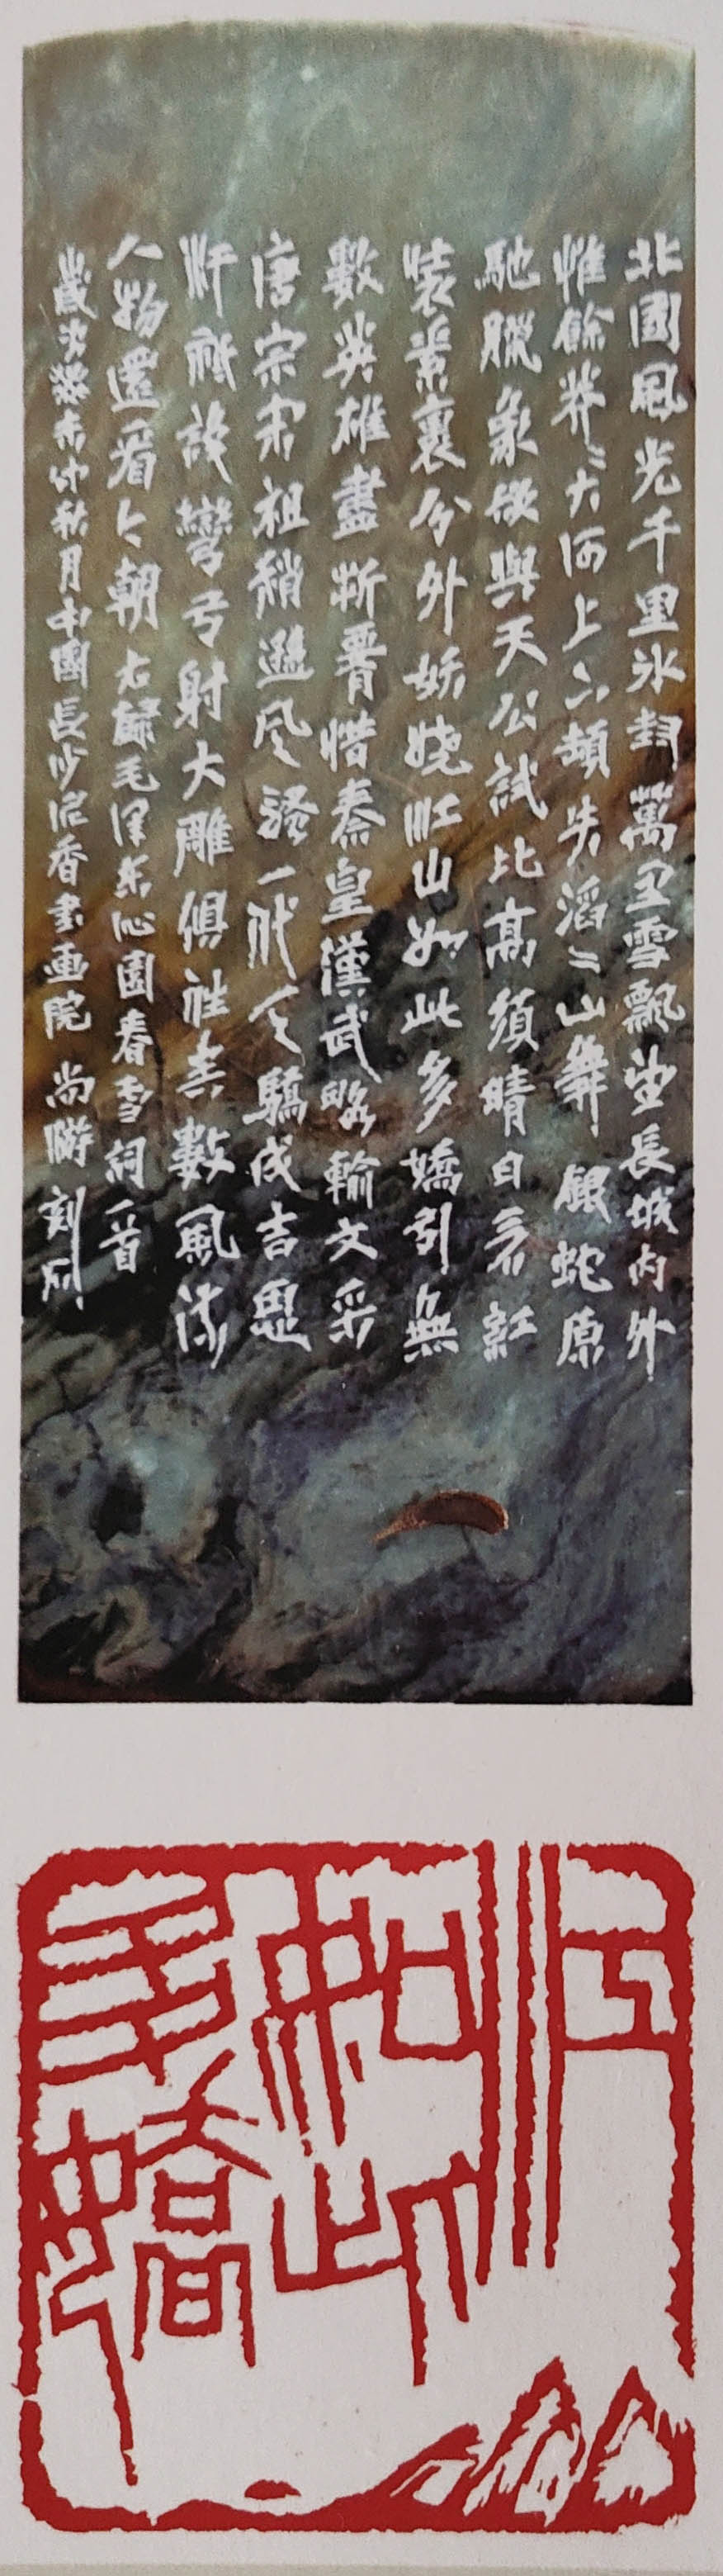 北國風光千里冰封萬里雪飄望長城内外
惟餘莽〻大河上下頓失滔〻山舞銀蛇原
馳臘象欲與天公試比高須晴日看紅
裝素裹分外妖嬈江山如此多嬌引無
數英雄盡折腰惜秦皇漢武略輸文采
唐宗宋祖稍遜風騷一代天驕成吉思
汗祇識彎弓射大雕俱往矣數風流
人物還看今朝 右録毛澤东沁園春雪詞一首
歲次癸未仲秋月中國長沙香書画院 尚游 刻石
江
如此
多嬌